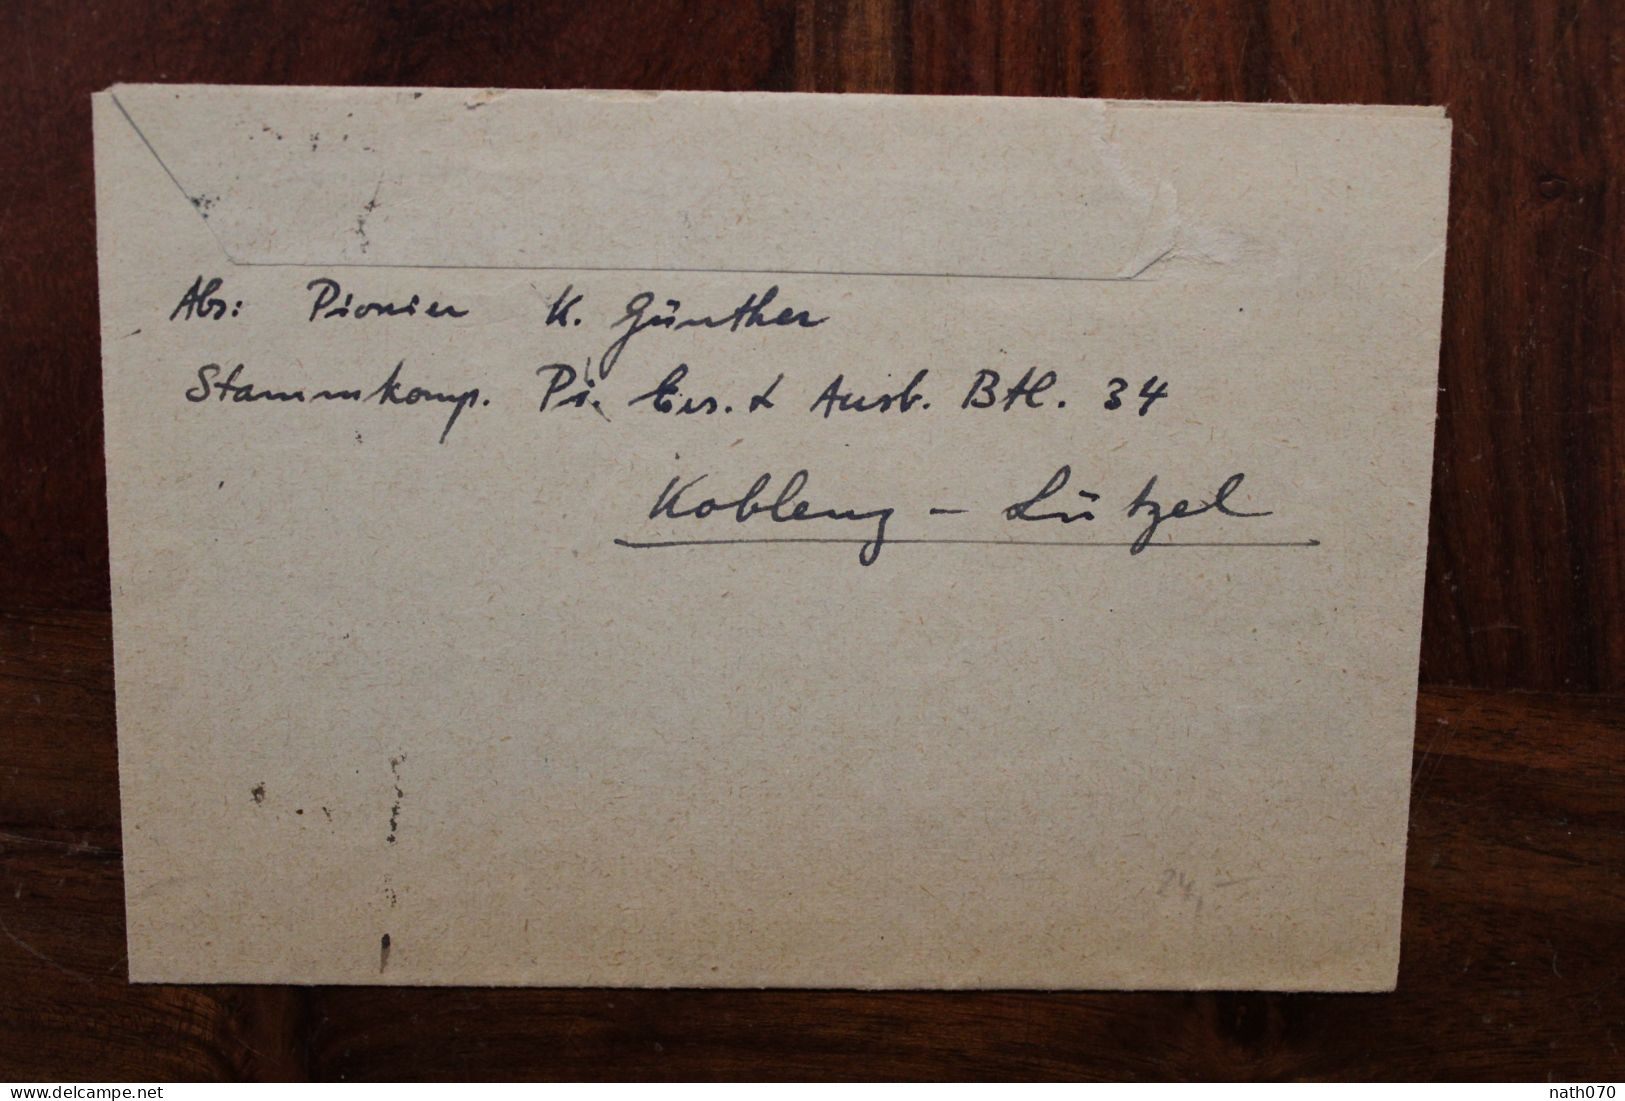 Abs: Pionier K. Günther
Stammkomp. Pi. Ers. & Ausb. Btl. 34
Koblenz - Lützel
24,-
www.delcampe.net
nath070